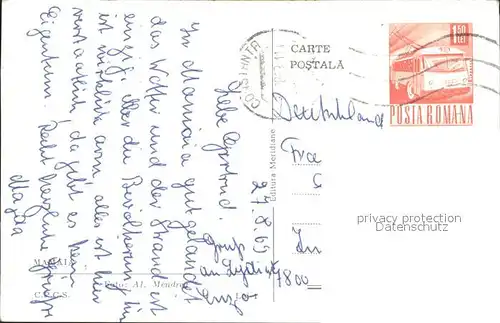 CARTE
POȘTALĂ
1,50
LEI
POSTA ROMANA
CONSTANTA
Deutschland
Fra
In
7800
Editura Meridiane
Liebe Gertrud!
27.8.69
In Mamaia gut gelandet
das Wetter und der Strand ist
einzig aber die Bevölkerung hier
ist wirklich arm alles ist hier
verstaatlich da gibt es kein
Eigentum. Recht herzliche Grüße
Magda
Gruß
an
MA
Foto: Al. Mendrea
C.P.C.S.
privacy protection
Datenschutz